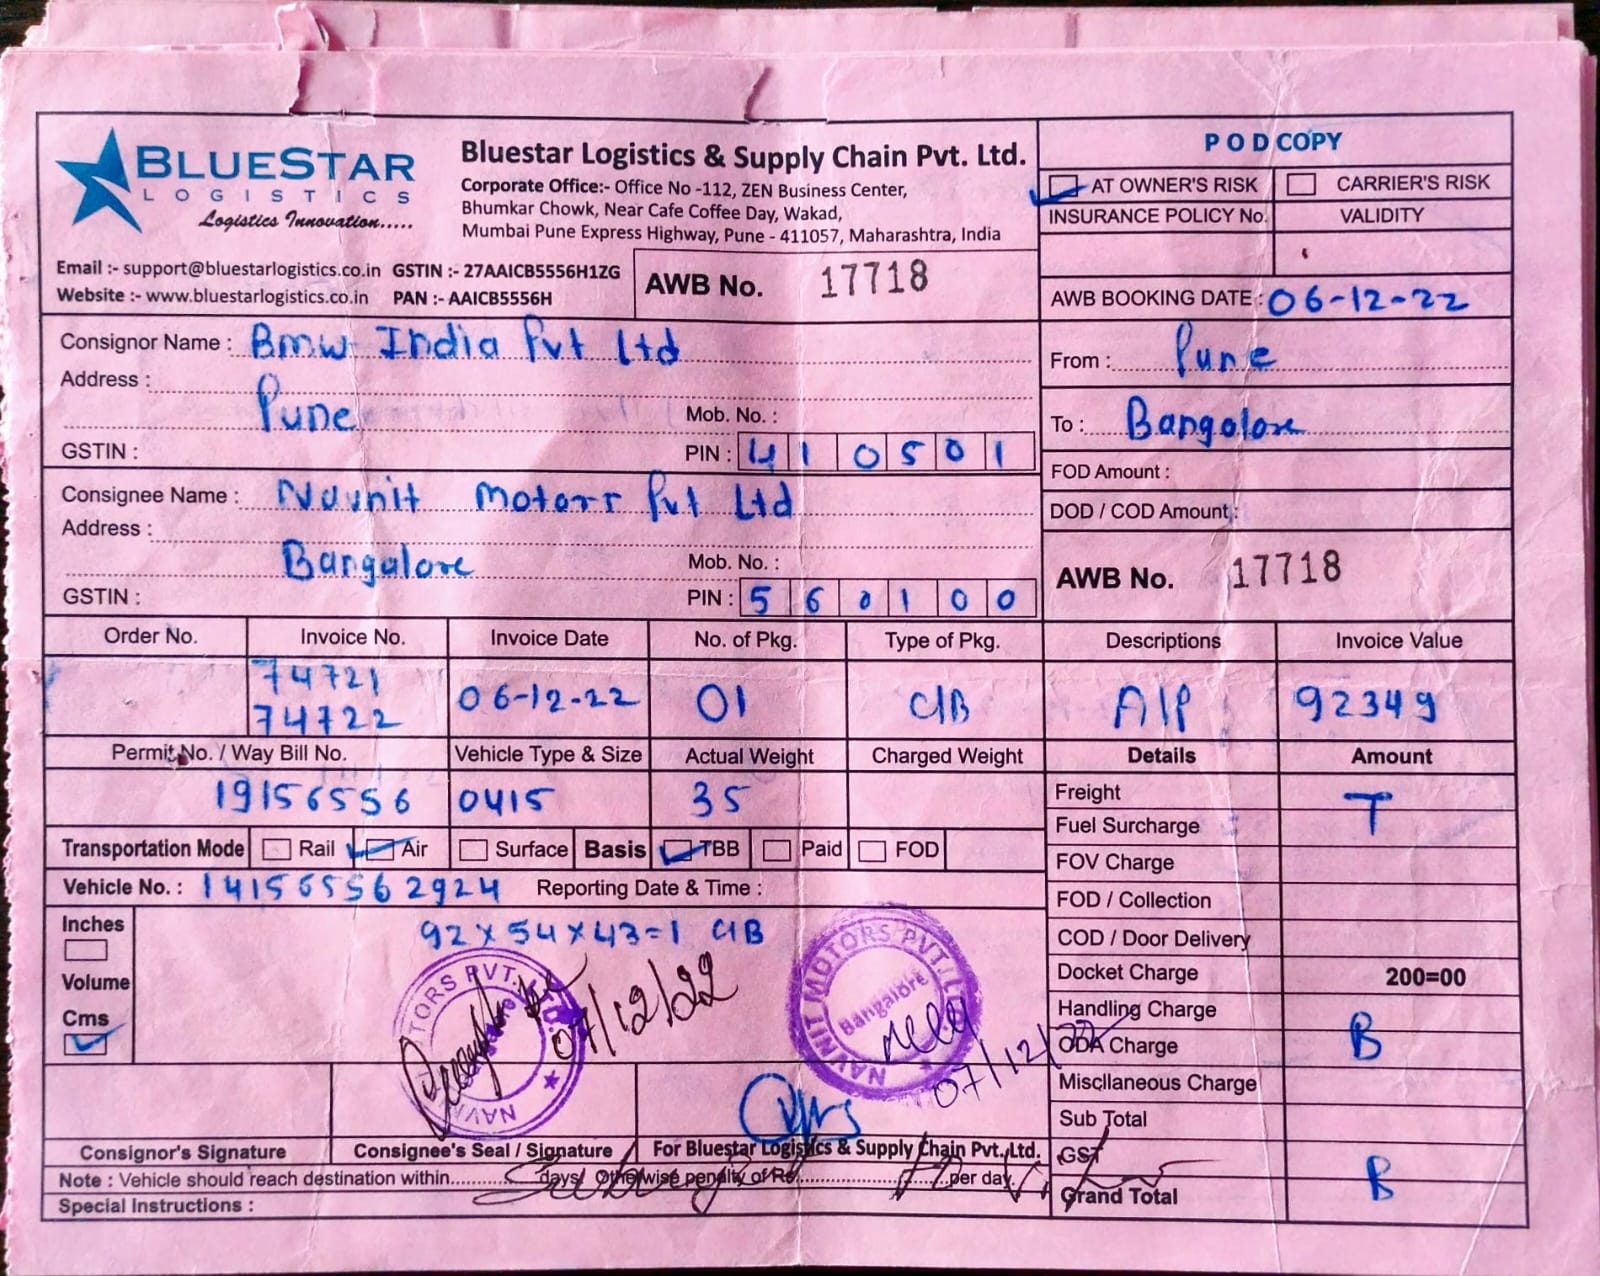 BLUESTAR
LOGISTICS
Logistics Innovation.....
Bluestar Logistics & Supply Chain Pvt. Ltd.
Corporate Office:- Office No -112, ZEN Business Center,
Bhumkar Chowk, Near Cafe Coffee Day, Wakad,
Mumbai Pune Express Highway, Pune - 411057, Maharashtra, India
Email :- support@bluestarlogistics.co.in GSTIN :- 27AAICB5556H1ZG
Website :- www.bluestarlogistics.co.in PAN :- AAICB5556H
AWB No. 17718
P O D COPY
AT OWNER'S RISK CARRIER'S RISK
INSURANCE POLICY No. VALIDITY
AWB BOOKING DATE : 06-12-22
Consignor Name : Bmw India Pvt Ltd
Address :
Pune Mob. No. :
GSTIN : PIN : 410501
From : Pune
To : Bangalore
FOD Amount :
DOD / COD Amount :
Consignee Name : Navnit Motors Pvt Ltd
Address :
Bangalore Mob. No. :
GSTIN : PIN : 560100
AWB No. 17718
Order No. Invoice No. Invoice Date No. of Pkg. Type of Pkg. Descriptions Invoice Value
74721
74722 06-12-22 01 C/B A/P 92349
Permit No. / Way Bill No. Vehicle Type & Size Actual Weight Charged Weight Details Amount
19156556 0415 35
Freight T
Fuel Surcharge
FOV Charge
FOD / Collection
COD / Door Delivery
Docket Charge 200=00
Handling Charge
ODA Charge B
Miscllaneous Charge
Sub Total
GST
Grand Total B
Transportation Mode Rail Air Surface Basis TBB Paid FOD
Vehicle No. : 141565562924 Reporting Date & Time :
Inches
Volume
Cms
92 x 54 x 43 = 1 C/B
07/12/22
NAVNIT MOTORS PVT. LTD.
Bangalore
07/12/22
Consignor's Signature Consignee's Seal / Signature For Bluestar Logistics & Supply Chain Pvt. Ltd.
Note : Vehicle should reach destination within..........days Otherwise penalty of Rs..........per day.
Special Instructions :